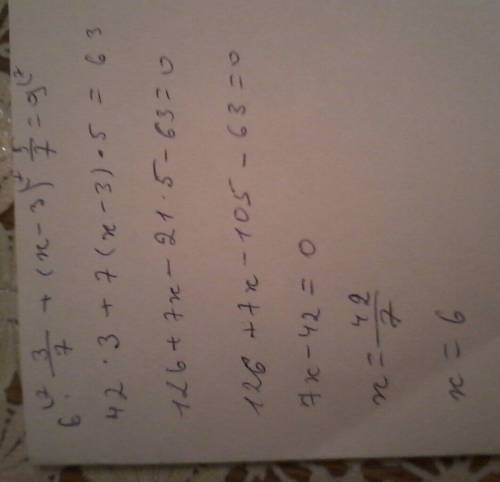 6 · 3/7 + (x - 3) 5/7 = 9
42 · 3 + 7(x - 3) · 5 = 63
126 + 7x - 21 · 5 - 63 = 0
126 + 7x - 105 - 63 = 0
7x - 42 = 0
x = 42/7
x = 6